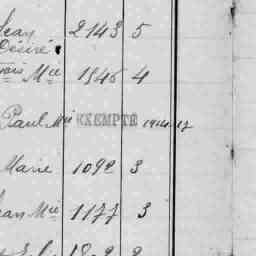 Jean 2143 5
Désiré
çois Mie 1546 4
Paul Mie EXEMPTÉ 1914-17
Marie 1092 3
Jean Mie 1177 3